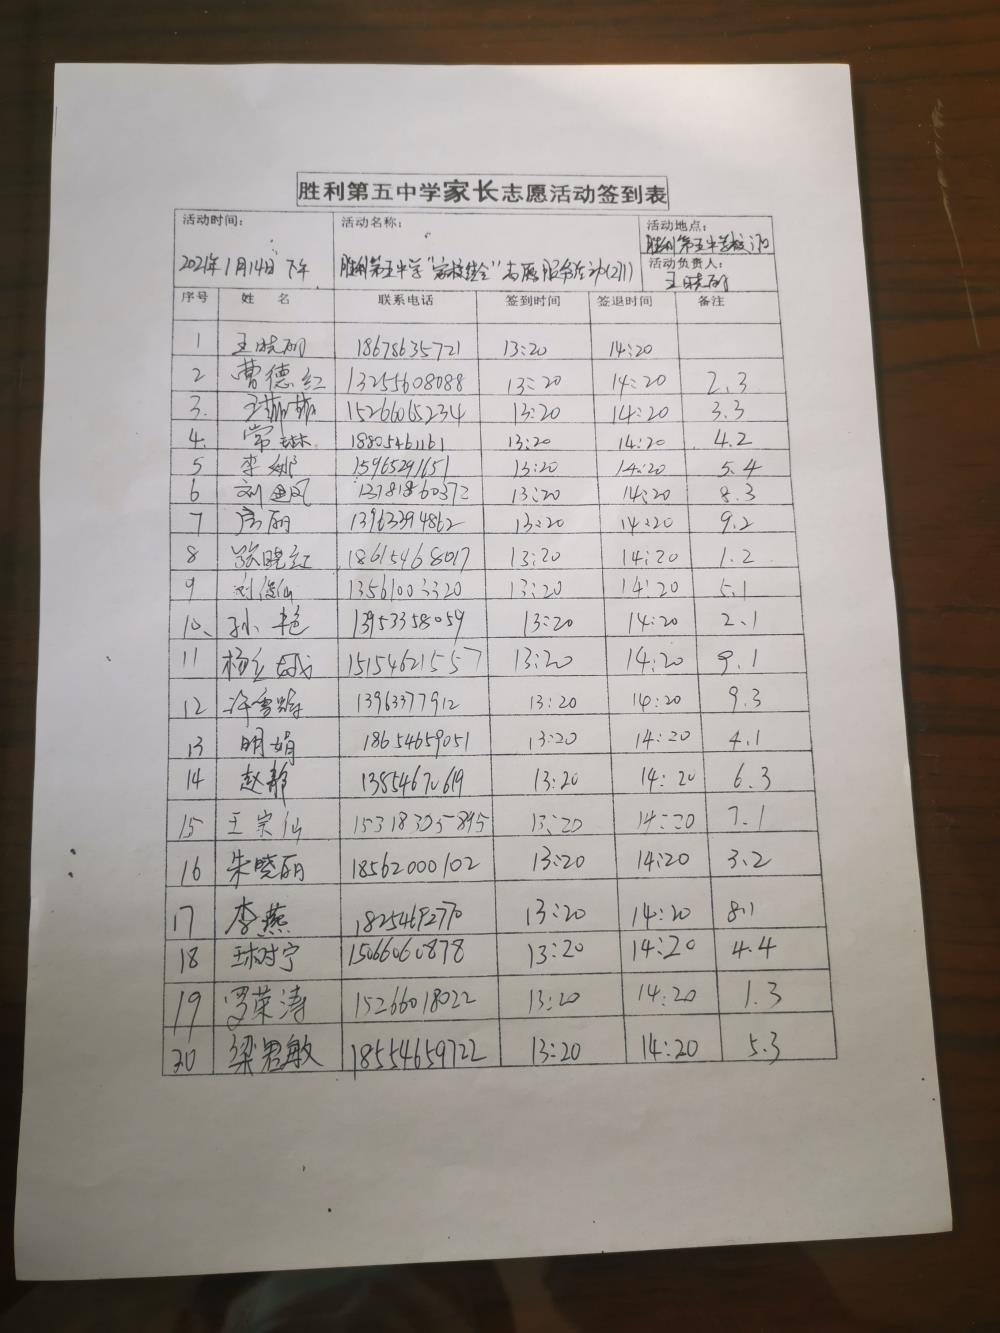 胜利第五中学家长志愿活动签到表
活动时间: 活动名称: 活动地点:
胜利第五中学校门口
2021年1月14日下午 胜利第五中学“家校结合”志愿服务活动(211)
活动负责人:
王晓丽
序号 姓名 联系电话 签到时间 签退时间 备注
1 王晓丽 18678635721 13:20 14:20
2 曹德红 13255608088 13:20 14:20 2.3
3. 王茹茹 15266065234 13:20 14:20 3.3
4. 常琳 18805461161 13:20 14:20 4.2
5 李娜 15965291651 13:20 14:20 5.4
6 刘 凤 13781860372 13:20 14:20 8.3
7 房丽 13963394862 13:20 14:20 9.2
8 张晓红 18615468017 13:20 14:20 1.2
9 刘俊仙 13561003320 13:20 14:20 5.1
10、 孙艳 13953358059 13:20 14:20 2.1
11 杨 15154621557 13:20 14:20 9.1
12 许雪 13963377912 13:20 14:20 9.3
13 明娟 18654659051 13:20 14:20 4.1
14 赵静 13854670619 13:20 14:20 6.3
15 王宗仙 15318305895 13:20 14:20 7.1
16 朱晓丽 18562000102 13:20 14:20 3.2
17 李燕 18254692770 13:20 14:20 8.1
18 宁 15066060878 13:20 14:20 4.4
19 罗荣涛 15266018022 13:20 14:20 1.3
20 梁君敏 18554659722 13:20 14:20 5.3